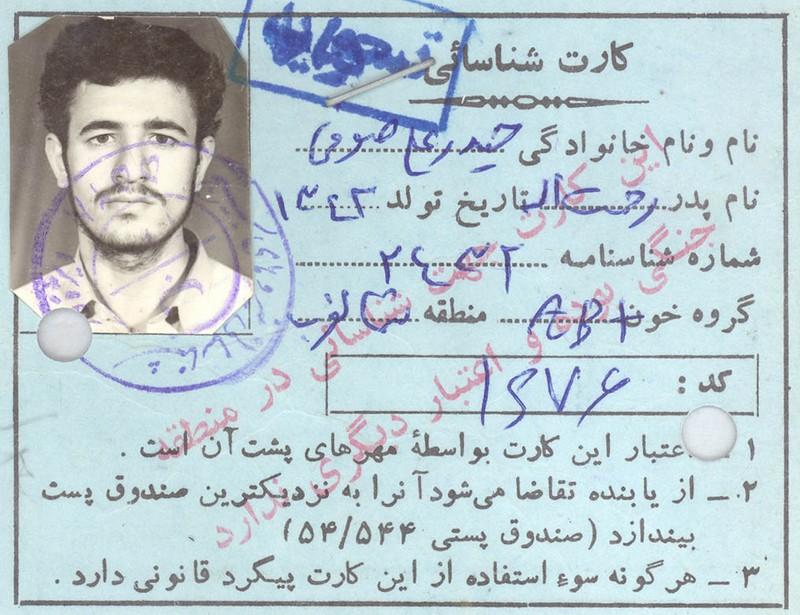 کارت شناسائی
نام و نام خانوادگی حیدر علی صومی
نام پدر رحمت اله تاریخ تولد ۱۳۴۲
شماره شناسنامه ۲۴۳۲
گروه خون AB+ منطقه
کد : ۱۴۷۶
۱ - اعتبار این کارت بواسطهٔ مهرهای پشت آن است .
۲ ــ از یابنده تقاضا می‌شود آنرا به نزدیکترین صندوق پست
بیندازد (صندوق پستی ۵۴/۵۴۴)
۳ ــ هرگونه سوءِ استفاده از این کارت پیگرد قانونی دارد .
این کارت جهت شناسائی در منطقه
جنگی بوده و اعتبار دیگری ندارد